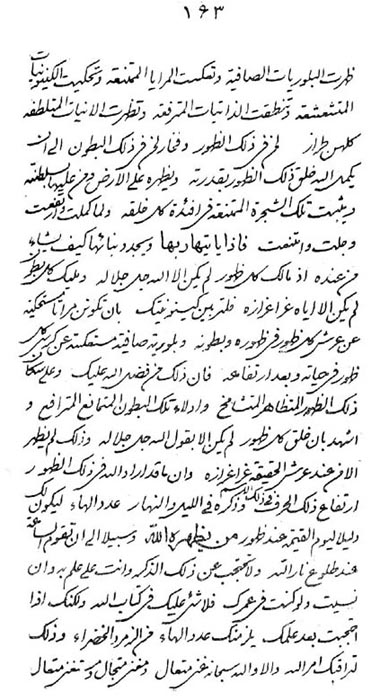 ١٦٣
ظهرت البلوريات الصافية وتعكست المرايا الممتنعة وتحكيت الكينونيات
المتشعشعة وتنطقت الذاتيات المترفعة وتظهرت الانيات المتلطفة
كلهن طراز لمن في ذلك الظهور وفخار لمن في ذلك البطون الى ان
يكمل الله خلق ذلك الظهور بقدرته ويظهره على الارض ومن عليها بسلطنته
ويثبت تلك الشجرة الممتنعة في افئدة كل خلقه ولما كملت وارتفعت
وجلت وامتنعت فاذا ياتيها ربها ويجدد بنائها كيف يشاء
من عنده اذ مالك كل ظهور لم يكن الا الله جل جلاله ومليك كل بطون
لم يكن الا اياه عز اعزازه فلتربين كينونيتك بان تكونن مرآتا مستحكية
عن عرش كل ظهور في ظهوره وبطونه وبلورية صافية مستعكسة عن كرسي كل
ظهور في حياته وبعد ارتفاعه فان ذلك من فضل الله عليك وعلى سكان
ذلك الظهور المتظاهر المتشامخ وادلاء تلك البطون المتمانع المترافع و
اشهد بان خلق كل ظهور لم يكن الا بقول الله جل جلاله وذلك لم يظهر
الا من عند عرش الحقيقة عز اعزازه وان ما قد اراد الله في ذلك الظهور
ارتفاع ذلك الحرف وذكره في الليل والنهار عدد الهاء ليكون لك
دليلا ليوم القيمة عند ظهور من يظهره الله وسبيلا الى ان تقوم الساعة
عند طلوع نار الله ولا تحتجب عن ذلك الذكر وانت على علم به وان
نسيت ولو كنت في عمرك فلا شئ عليك في كتاب الله ولكنك اذا
احتجبت بعد علمك يلزمنك عدد الهاء من الزمرد الخضراء وذلك
تراقبك امر الله والا والله سبحانه غنى متعال ومغنى متجال ومستغنى متعال